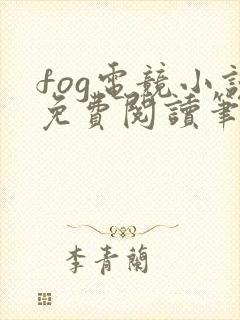 fog電競小說
免費閱讀筆
李青蘭